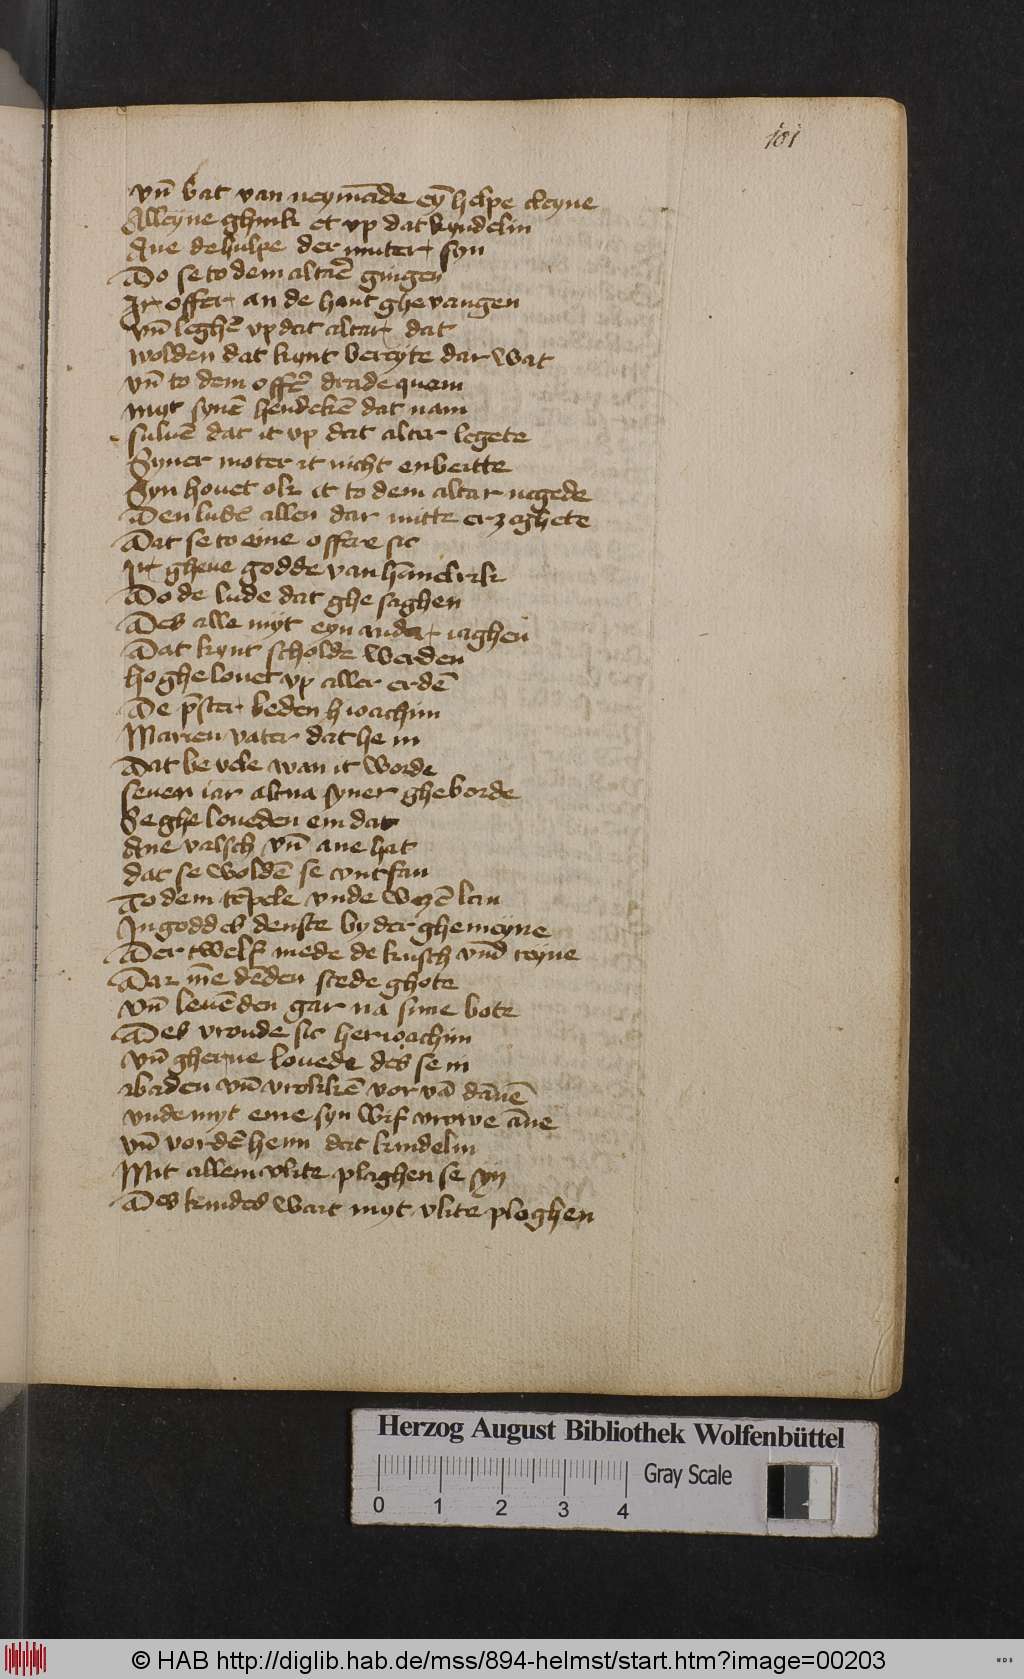 101
vn̄ bat van neymāde eȳ helpe cleyne
Alleyne ghink et vp dat kyndelin
Ane de hulpe der muter syn
Do se to dem altaer̄ gingen
Ir offer an de hant ghevangen
vn̄ leghē vp dat altar dat
wolden dat kynt bereyte dar wat
vn̄ to dem offer̄ drade quam
myt synē hendekē dat nam
suluē dat it vp dat alter legete
Syner moter it nicht enbeitte
Syn houet ok it to dem altar negede
Den ludē allen dar mitte erzeghete
Dat se to eyme offere sic
It gheue godde van hāmelrik
Do de lude dat ghe saghen
Des alle myt eyn ander iaghen
Dat kynt scholde werden
hoghe louet vp aller erdē
De p̄ster beden h ioachim
Marien vater dat he in
Dat be vele wan it worde
seuen iar alt na syner gheborde
Se ghe loueden em dat
Ane valsch vn̄ ane hat
dat se woldē se vntfan
To dem tēpele vnde wezē lan
In goddes denste by der ghemeyne
Der twelf mede de kusch vn̄d reyne
Dar īne dēden stede ghote
vn̄ leuēden gar na sime bote
Des vroude sic her ioachim
vn̄ gherne louede des se in
baden vn̄ vrokkē vor vā dānē
vnde myt eme syn wif vrowe āne
vn̄ vordē henn dat kindelin
Mit allem vlite plaghen se syn
Des kindes wart myt vlite ploghen
Herzog August Bibliothek Wolfenbüttel
0 1 2 3 4 Gray Scale
© HAB http://diglib.hab.de/mss/894-helmst/start.htm?image=00203